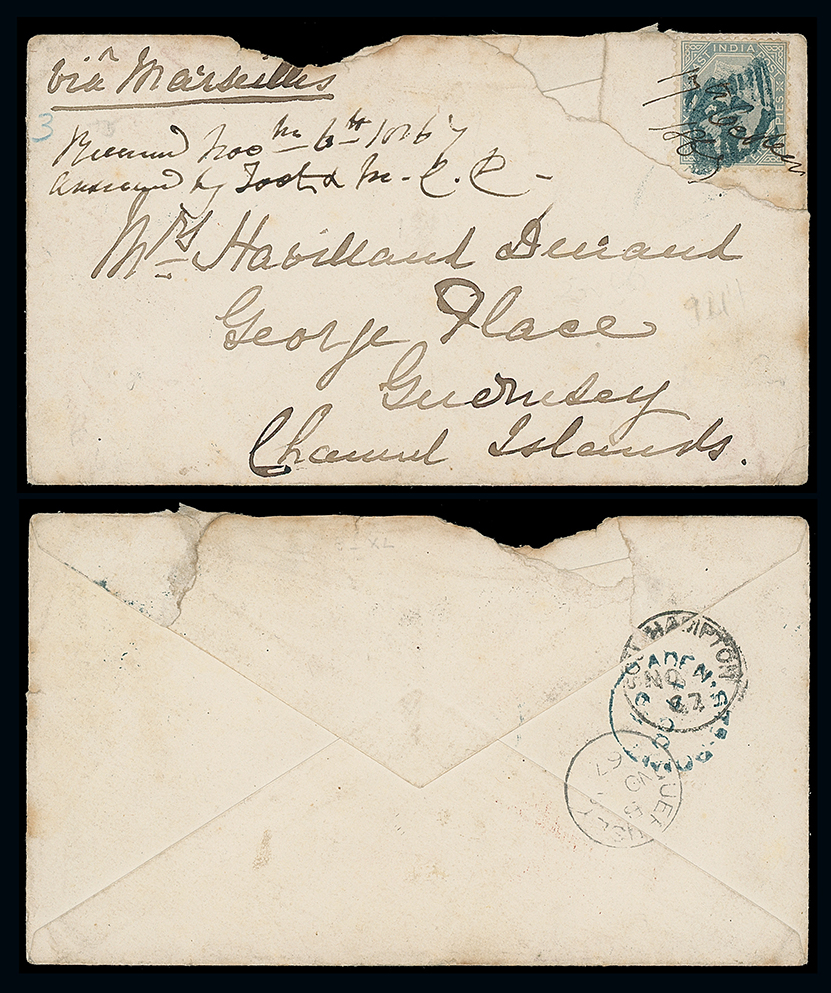 viâ Marseilles
3
Received Nov 6th 1867
answered by
Mrs Havilland Durand
George Place
Guernsey
Channel Islands.
INDIA
SOUTHAMPTON
NO
67
ADEN
GUERNSEY
NO 8
67